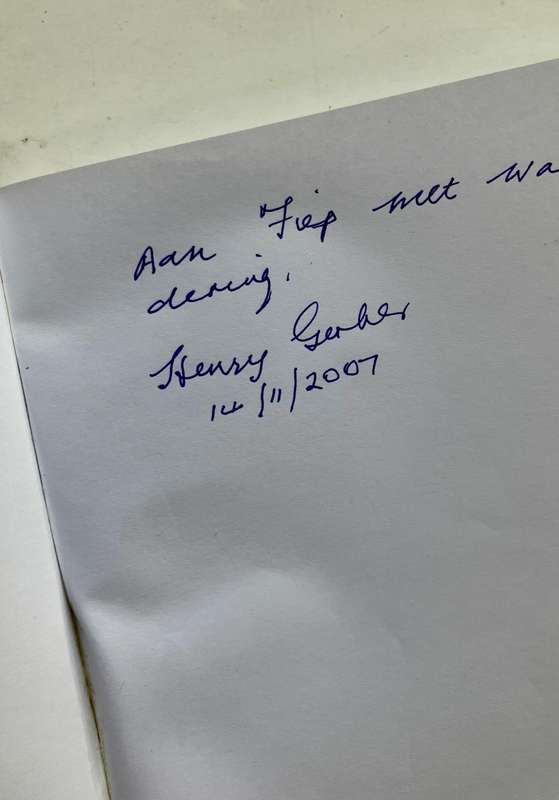 Aan Fiep met wa
dering.
Henry Gerber
14/11/2007